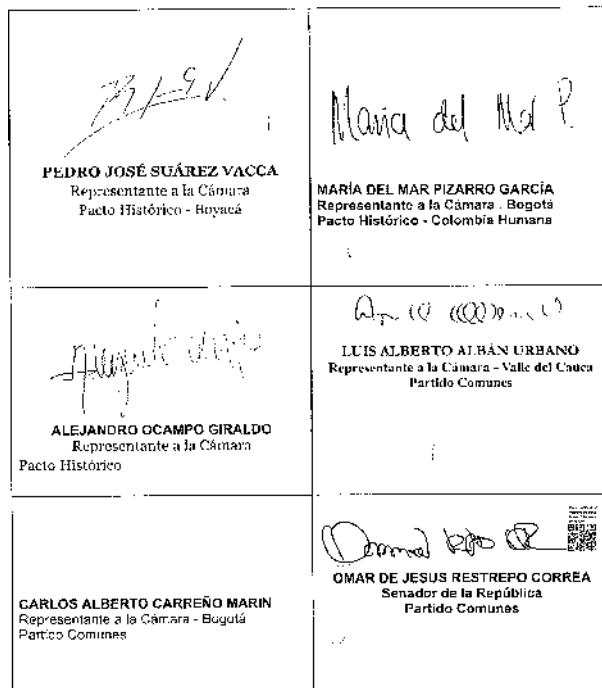 PEDRO JOSÉ SUÁREZ VACCA
Representante a la Cámara
Pacto Histórico - Boyacá
María del Mar P.
MARÍA DEL MAR PIZARRO GARCÍA
Representante a la Cámara . Bogotá
Pacto Histórico - Colombia Humana
ALEJANDRO OCAMPO GIRALDO
Representante a la Cámara
Pacto Histórico
LUIS ALBERTO ALBÁN URBANO
Representante a la Cámara - Valle del Cauca
Partido Comunes
CARLOS ALBERTO CARREÑO MARIN
Representante a la Cámara - Bogotá
Partido Comunes
OMAR DE JESUS RESTREPO CORREA
Senador de la República
Partido Comunes